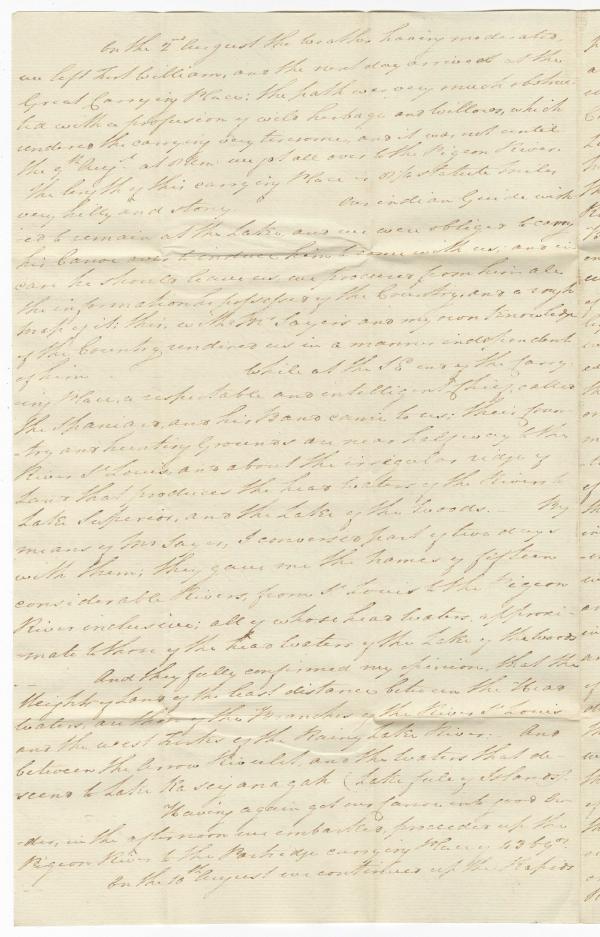 On the 2nd August the weather having moderated,
we left Fort William, and the next day arrived at the
Great Carrying Place: the path was very much obstruc-
ted with a profusion of wild herbage and Willows, which
rendered the carrying very tiresome, and it was not until
the 9th Augt. at we got all over to the Pigeon River.
The length of this carrying Place is statute miles
very hilly and stony. Our indian Guide wish
ed to remain at the Lake, and we were obliged to carry
his Canoe over to induce him to come with us; and in
case he should leave us, we procured from him all
the information he possessed of the Country, and a rough
map of it: this, with Mr. Sayers and my own knowledge
of the Country rendered us in a manner independent
of him. While at the SE end of the Carry-
ing Place, a respectable and intelligent Chief, called
the Spaniard, and his Band came to us: their Coun
-try and hunting Grounds are near halfway to the
River St. Louis, and about the irregular ridge of
Land that produces the head Waters of the Rivers to
Lake Superior, and the Lake of the Woods. By
means of Mr Sayer, I conversed part of two days
with them; they gave me the names of fifteen
considerable Rivers, from St Louis to the Pigeon
River inclusive; all of whose head Waters, approxi-
-mate to those of the head Waters of the Lake of the Woods
And they fully confirmed my opinion, that the
Heights of Land of the least distance between the Head
Waters, are those of the Branches of the River St Louis
and the west Forks of the Rainy Lake River. And
between the Arrow Rivulet, and the Waters that de-
scend to Lake Kaseiganagah (Lake full of Islands).
Having again got our Canoe into good or-
-der, in the afternoon we embarked, proceeded up the
Pigeon River to the Partridge carrying Place of
On the 10th August we continued up the Rapids